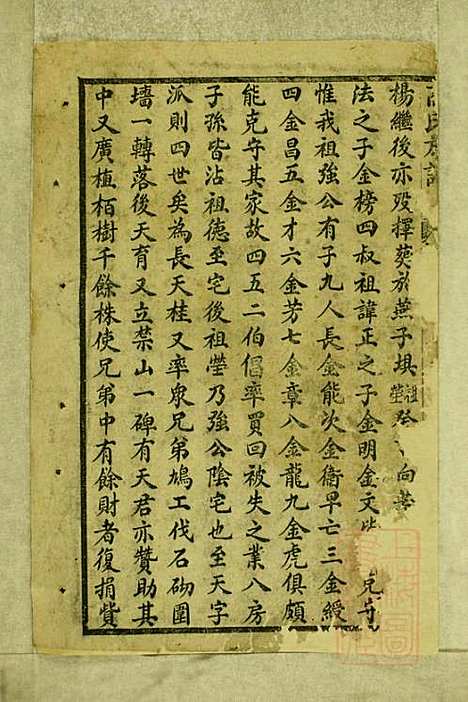 氏族譜
楊繼後亦歿擇葵於燕子垻祖塋 向
法之子金榜四叔祖諱正之子金明金文 克守
惟我祖強公有子九人長金能次金衛早亡三金綬
四金昌五金才六金芳七金章八金龍九金虎俱頗
能克守其家故四五二伯倡率買回被失之業八房
子孫皆沾祖德至宅後祖塋乃強公陰宅也至天字
派則四世矣為長天桂又率衆兄弟鳩工伐石砌圍
墻一轉落後天育又立禁山一碑有天君亦贊助其
中又廣植栢樹千餘株使兄弟中有餘財者復捐貲